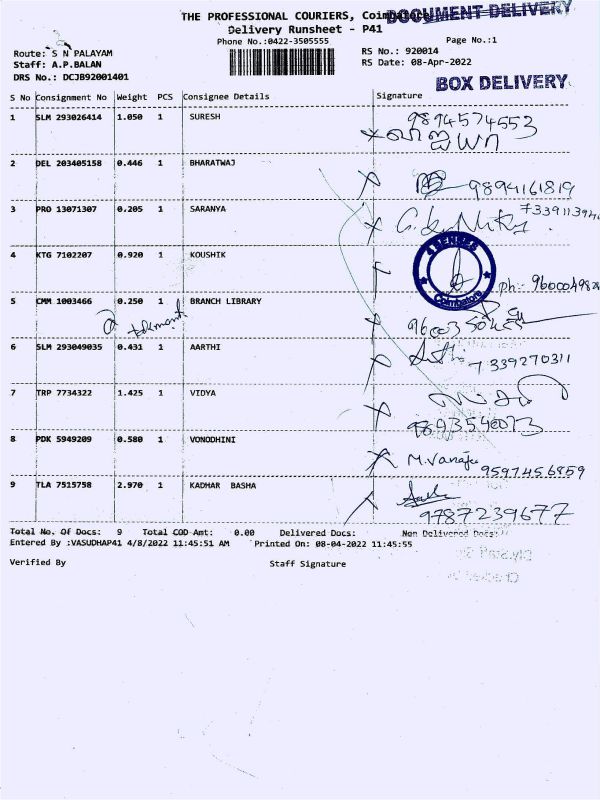 THE PROFESSIONAL COURIERS, Coimbatore
DOCUMENT DELIVERY
Delivery Runsheet - P41
Phone No.:0422-3505555
Page No.:1
Route: S N PALAYAM
RS No.: 920014
Staff: A.P.BALAN
RS Date: 08-Apr-2022
DRS No.: DCJB92001401
BOX DELIVERY
S No Consignment No Weight PCS Consignee Details Signature
1 SLM 293026414 1.050 1 SURESH 9894574553
2 DEL 203405158 0.446 1 BHARATWAJ 9894161819
3 PRO 13071307 0.205 1 SARANYA
4 KTG 7102207 0.920 1 KOUSHIK
4 SENSES
Coimbatore
Ph:-
5 CMM 1003466 0.250 1 BRANCH LIBRARY
6 SLM 293049035 0.431 1 AARTHI
7339270311
7 TRP 7734322 1.425 1 VIDYA
9893540073
8 PDK 5949209 0.580 1 VONODHINI M.Vanaja
9597456859
9 TLA 7515758 2.970 1 KADHAR BASHA
9787239677
Total No. Of Docs: 9 Total COD Amt: 0.00 Delivered Docs: Non Delivered Docs:
Entered By :VASUDHAP41 4/8/2022 11:45:51 AM Printed On: 08-04-2022 11:45:55
Verified By Staff Signature